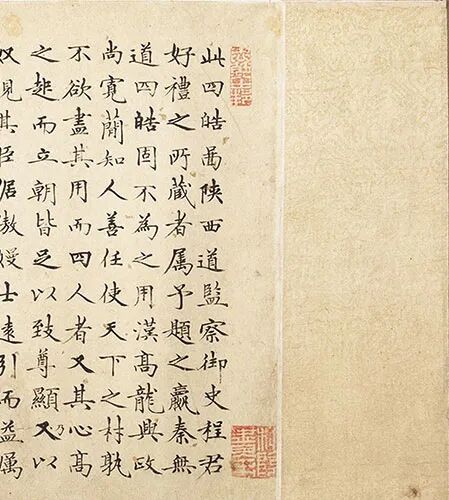 此四皓啚陝西道監察御史程君
好禮之所藏者属予題之嬴秦無
道四皓固不為之用漢髙龍興政
尚寛蕳知人善任使天下之材孰
不欲盡其用而四人者又其心髙
之而立朝皆足以致尊顯又乃以
見其臣倨敖嫚士遠引而益